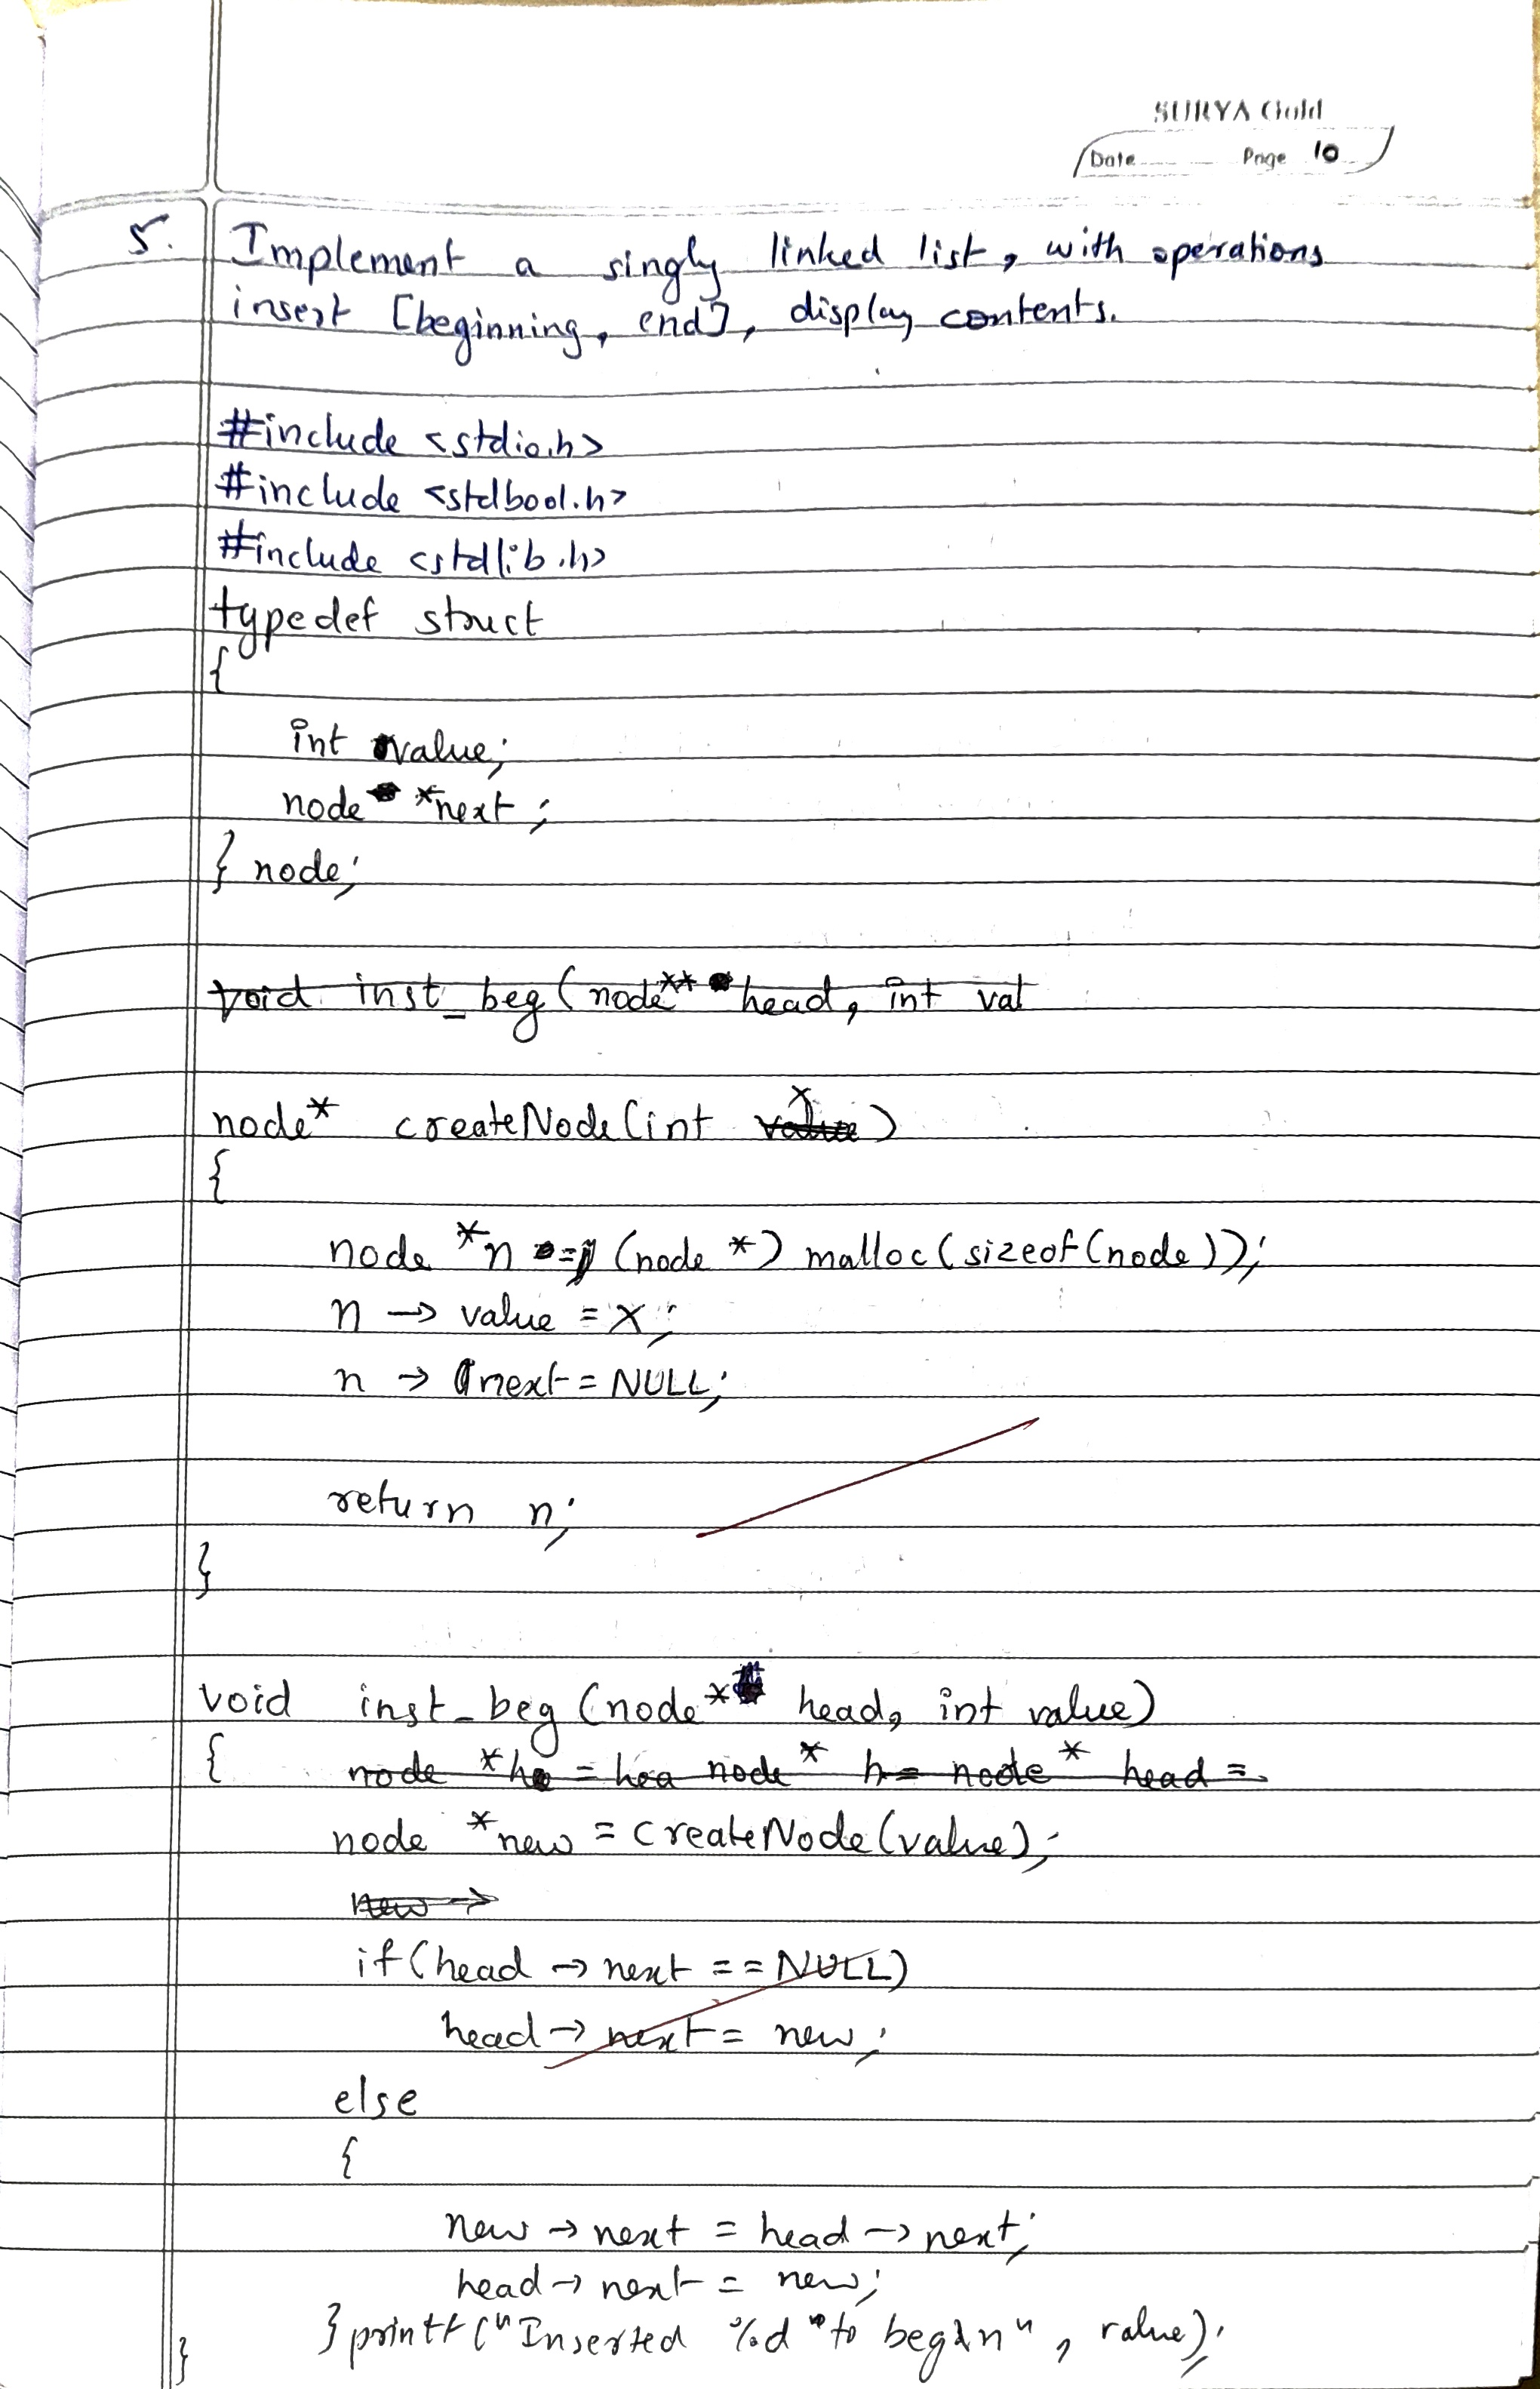 SURYA Gold
Date Page 10
5. Implement a singly linked list, with operations
insert [beginning, end], display contents.
#include <stdio.h>
#include <stdbool.h>
#include <stdlib.h>
typedef struct
{
int value;
node *next;
} node;
void inst_beg(node** head, int val
node* createNode(int value x)
{
node *n = (node *) malloc(sizeof(node));
n → value = x;
n → next = NULL;
return n;
}
void inst_beg (node* head, int value)
{ node *he = hea node* h = node* head =
node *new = createNode(value);
new →
if(head → next == NULL)
head → next = new;
else
{
new → next = head → next;
head → next = new;
} printf("Inserted %d to begin", value);
}